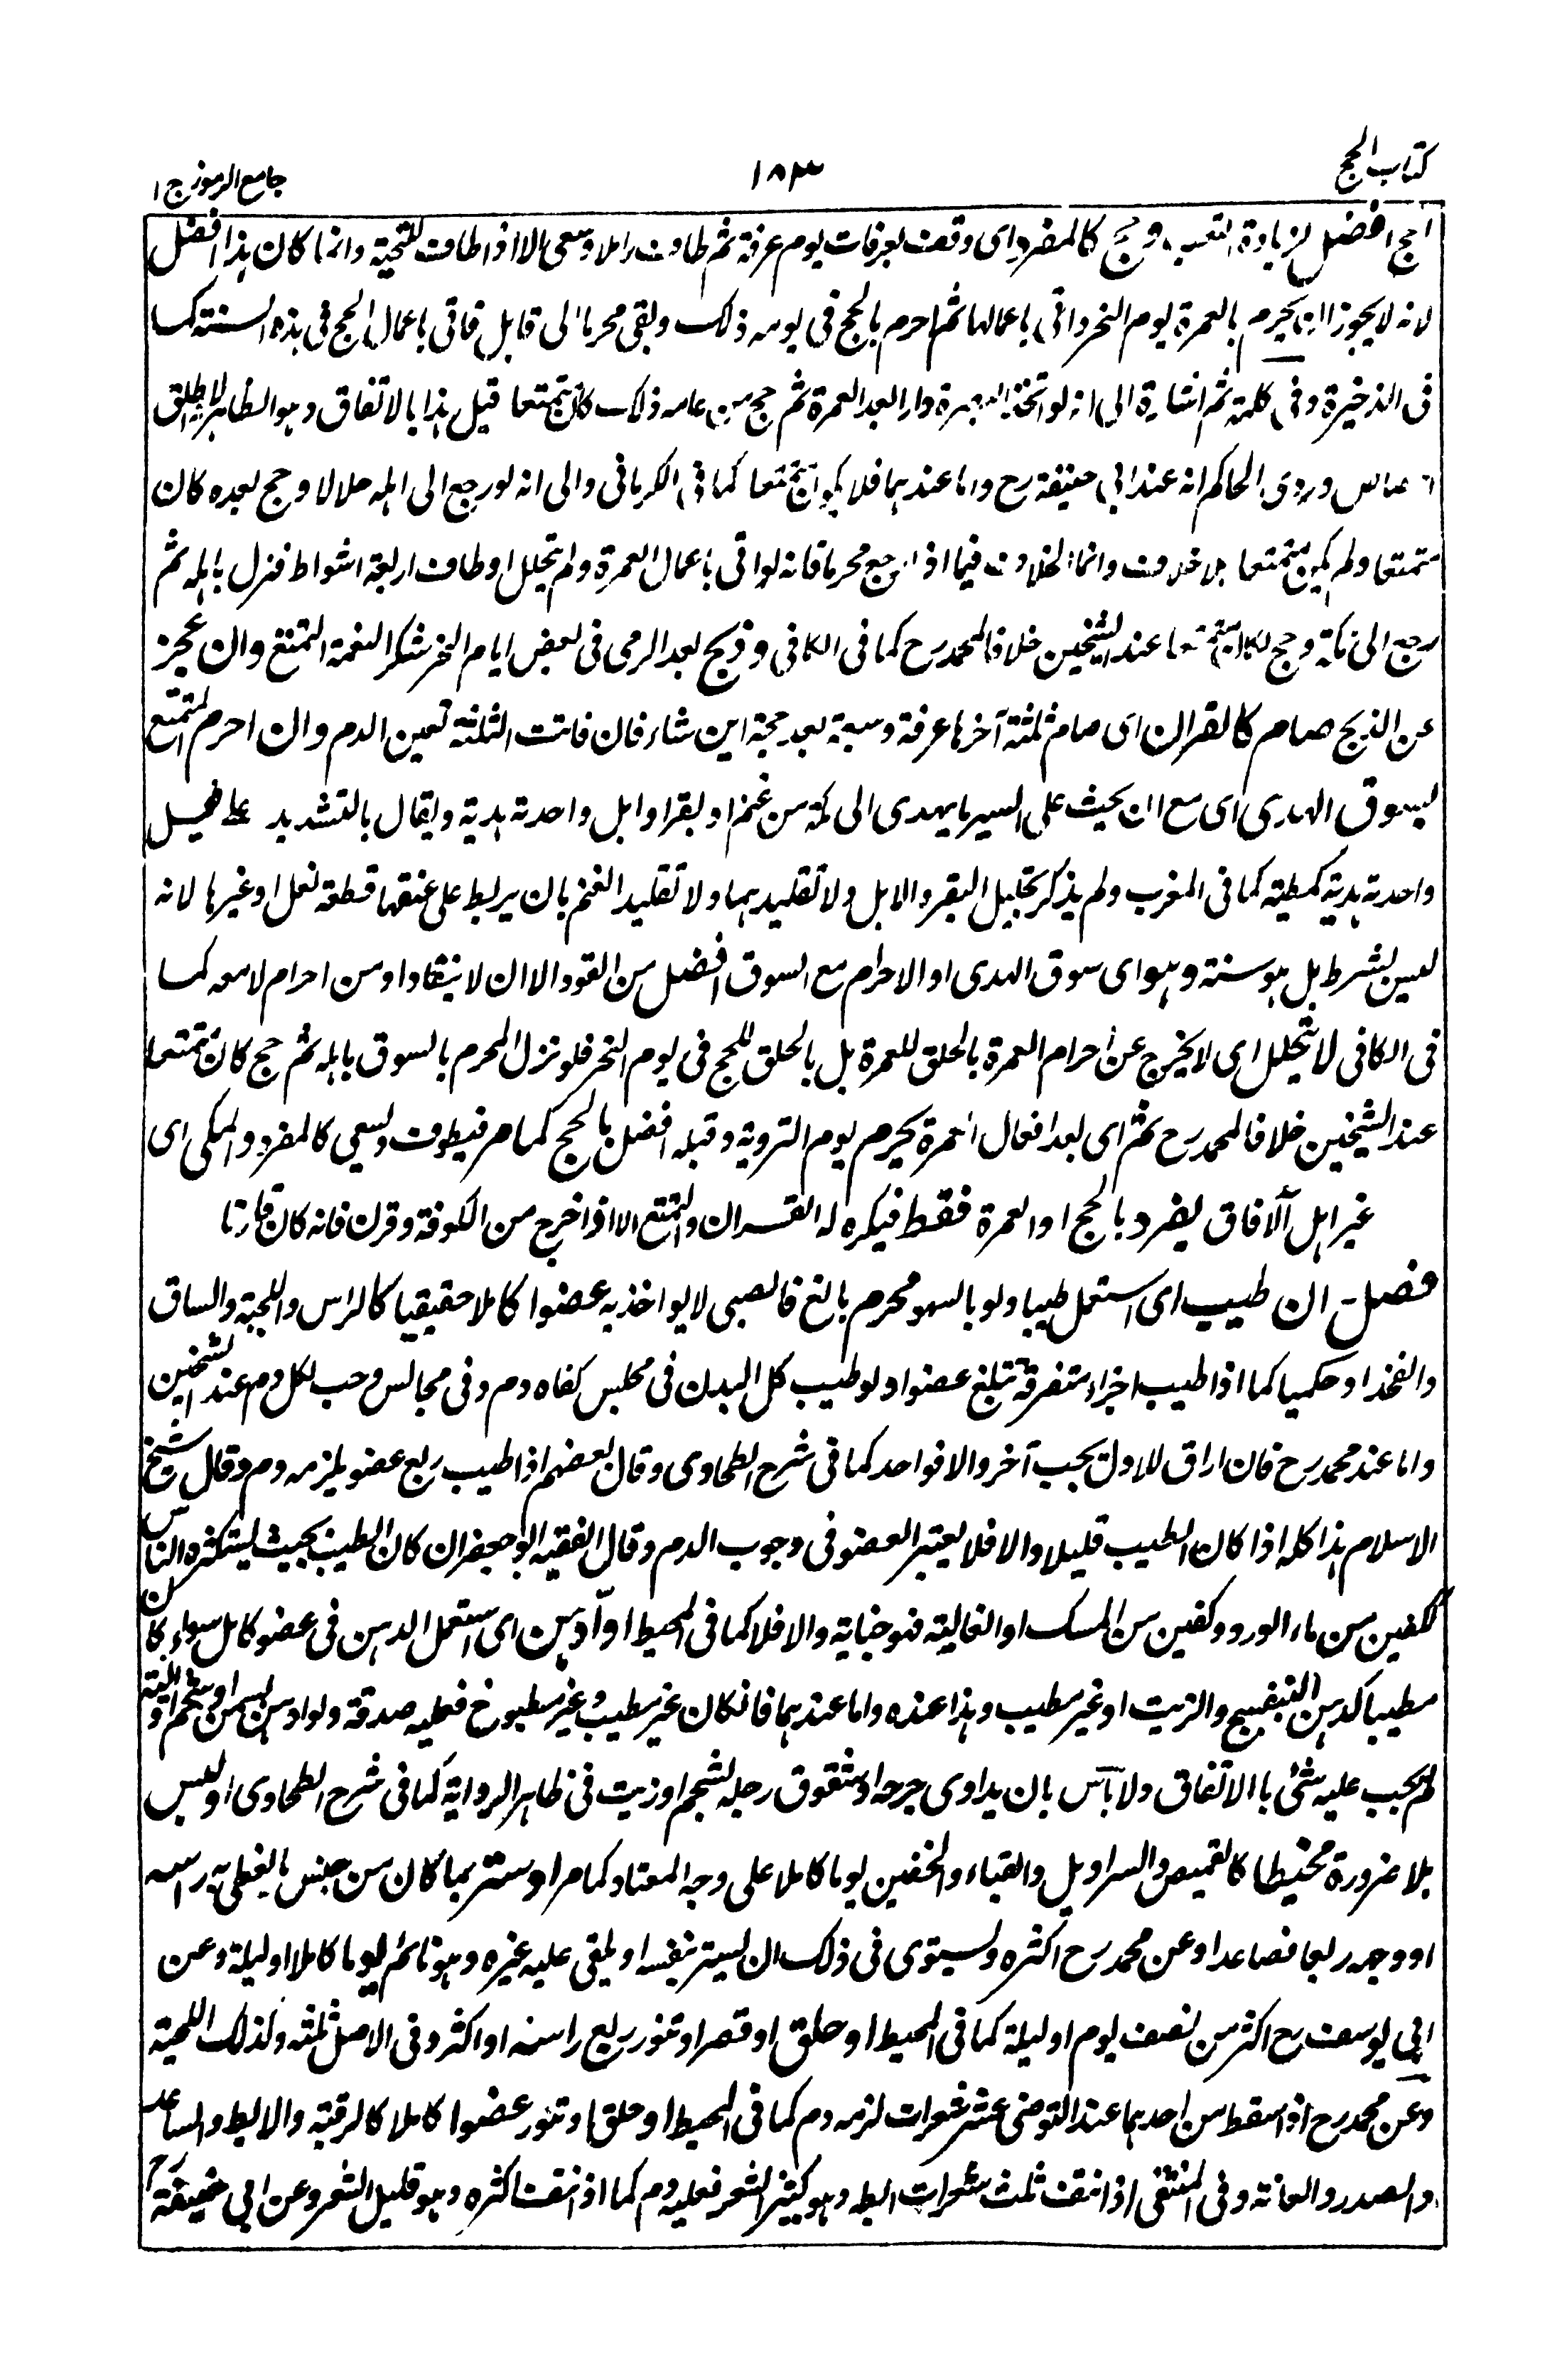 كتاب الحج
١٨٣
جامع الرموز ج ١
الحج افضل لزيادة التعب وحج كالمفرد اى وقف بعرفات يوم عرفة ثم طاف راملا وسعى الا اذا طاف للتحية وانما كان هذا افضل
لانه لا يجوز ان يحرم بالعمرة يوم النحر واتى باعمالها ثم احرم بالحج فى يومه ذلك وبقى محرما الى قابل فاتى باعمال الحج فى هذه السنة كما
فى الذخيرة وفى كلمة ثم اشارة الى انه لو اتخذ البصرة دارا بعد العمرة ثم حج من عامه ذلك كان متمتعا قيل هذا بالاتفاق وهو الظاهر لاطلاق
وروى الحاكم انه عند ابى حنيفة رح واما عندهما فلا يكون متمتعا كما فى الكرمانى والى انه لو رجع الى اهله حلالا وحج بعده كان
متمتعا ولم يكن متمتعا بلا خلاف وانما الخلاف فيما اذا رجع محرما فانه لو اتى باعمال العمرة ولم يتحلل او طاف اربعة اشواط فنزل باهله ثم
رجع الى مكة وحج لكان متمتعا عند الشيخين خلافا لمحمد رح كما فى الكافى وذبح بعد الرمى فى بعض ايام النحر شكرا لنعمة التمتع وان عجز
عن الذبح صام كالقران اى صام ثلثة آخرها عرفة وسبعة بعد حجه اين شاء فان فاتت الثلثة تعين الدم وان احرم المتمتع
بسوق الهدى اى مع ان يحث على السير ما يهدى الى مكة من غنم او بقر او ابل واحدته هدية ويقال بالتشديد على فعيل
واحدته هدية كمطية كما فى المغرب ولم يذكر تجليل البقر والابل ولا تقليدهما ولا تقليد الغنم بان يربط على عنقها قطعة نعل او غيرها لانه
ليس بشرط بل هو سنة وهو اى سوق الهدى او الاحرام مع السوق افضل من القود الا ان لا ينقاد او من احرام لا معه كما
فى الكافى لا يتحلل اى لا يخرج عن احرام العمرة بالحلق للعمرة بل بالحلق للحج فى يوم النحر فلو نزل المحرم بالسوق باهله ثم حج كان متمتعا
عند الشيخين خلافا لمحمد رح ثم اى بعد افعال العمرة يحرم يوم التروية وقبله افضل بالحج كما مر فيطوف ويسعى كالمفرد والمكى اى
غير اهل الآفاق يفرد بالحج او العمرة فقط فيكره له القران والتمتع الا اذا خرج من الكوفة وقرن فانه كان قارنا
فصل- ان طيب اى استعمل طيبا ولو بالسهو محرم بالغ فالصبى لا يواخذ به عضوا كاملا حقيقيا كالراس واللحية والساق
والفخذ او حكميا كما اذا طيب اجزاء متفرقة تبلغ عضوا ولو طيب كل البدن فى مجلس كفاه دم وفى مجالس وجب لكل دم عند الشيخين
واما عند محمد رح فان اراق للاول يجب آخر والا فواحد كما فى شرح الطحاوى وقال بعضهم اذا طيب ربع عضو يلزمه دم وقال شيخ
الاسلام هذا كله اذا كان الطيب قليلا والا فلا يعتبر العضو فى وجوب الدم وقال الفقيه ابو جعفر ان كان الطيب بحيث يستكثره الناس
ككفين من ماء الورد وكفين من المسك او الغالية فهو جناية والا فلا كما فى المحيط او ادهن اى استعمل الدهن فى عضو كامل سواء كان
مطيبا كدهن البنفسج والزيت او غير مطيب وهذا عنده واما عندهما فان كان غير مطيب وغير مطبوخ فعليه صدقة ولو ادهن بسمن او شحم او الية
لم يجب عليه شئ با الاتفاق ولا بأس بان يداوى جرحه او شقوق رجله بشحم او زيت فى ظاهر الرواية كما فى شرح الطحاوى او لبس
بلا ضرورة مخيطا كالقميص والسراويل والقباء والخفين يوما كاملا على وجه المعتاد كما مر او ستر بما كان من جنس ما يغطى به راسه
او وجهه ربعا فصاعدا وعن محمد رح اكثره ويستوى فى ذلك ان يستر بنفسه او يلقى عليه غيره وهو نائم يوما كاملا او ليلة وعن
ابى يوسف رح اكثر من نصف يوم او ليلة كما فى المحيط او حلق او قصر او تنور ربع راسه او اكثر وفى الاصل ثلثه وكذلك اللحية
وعن محمد رح اذا سقط من احدهما عند التوضى عشر شعرات لزمه دم كما فى المحيط او حلق او تنور عضوا كاملا كالرقبة والابط والساعد
والصدر والعانة وفى المنتقى اذا نتف ثلث شعرات ابطه وهو كثير الشعر فعليه دم كما اذا نتف اكثره وهو قليل الشعر وعن ابى حنيفة رح